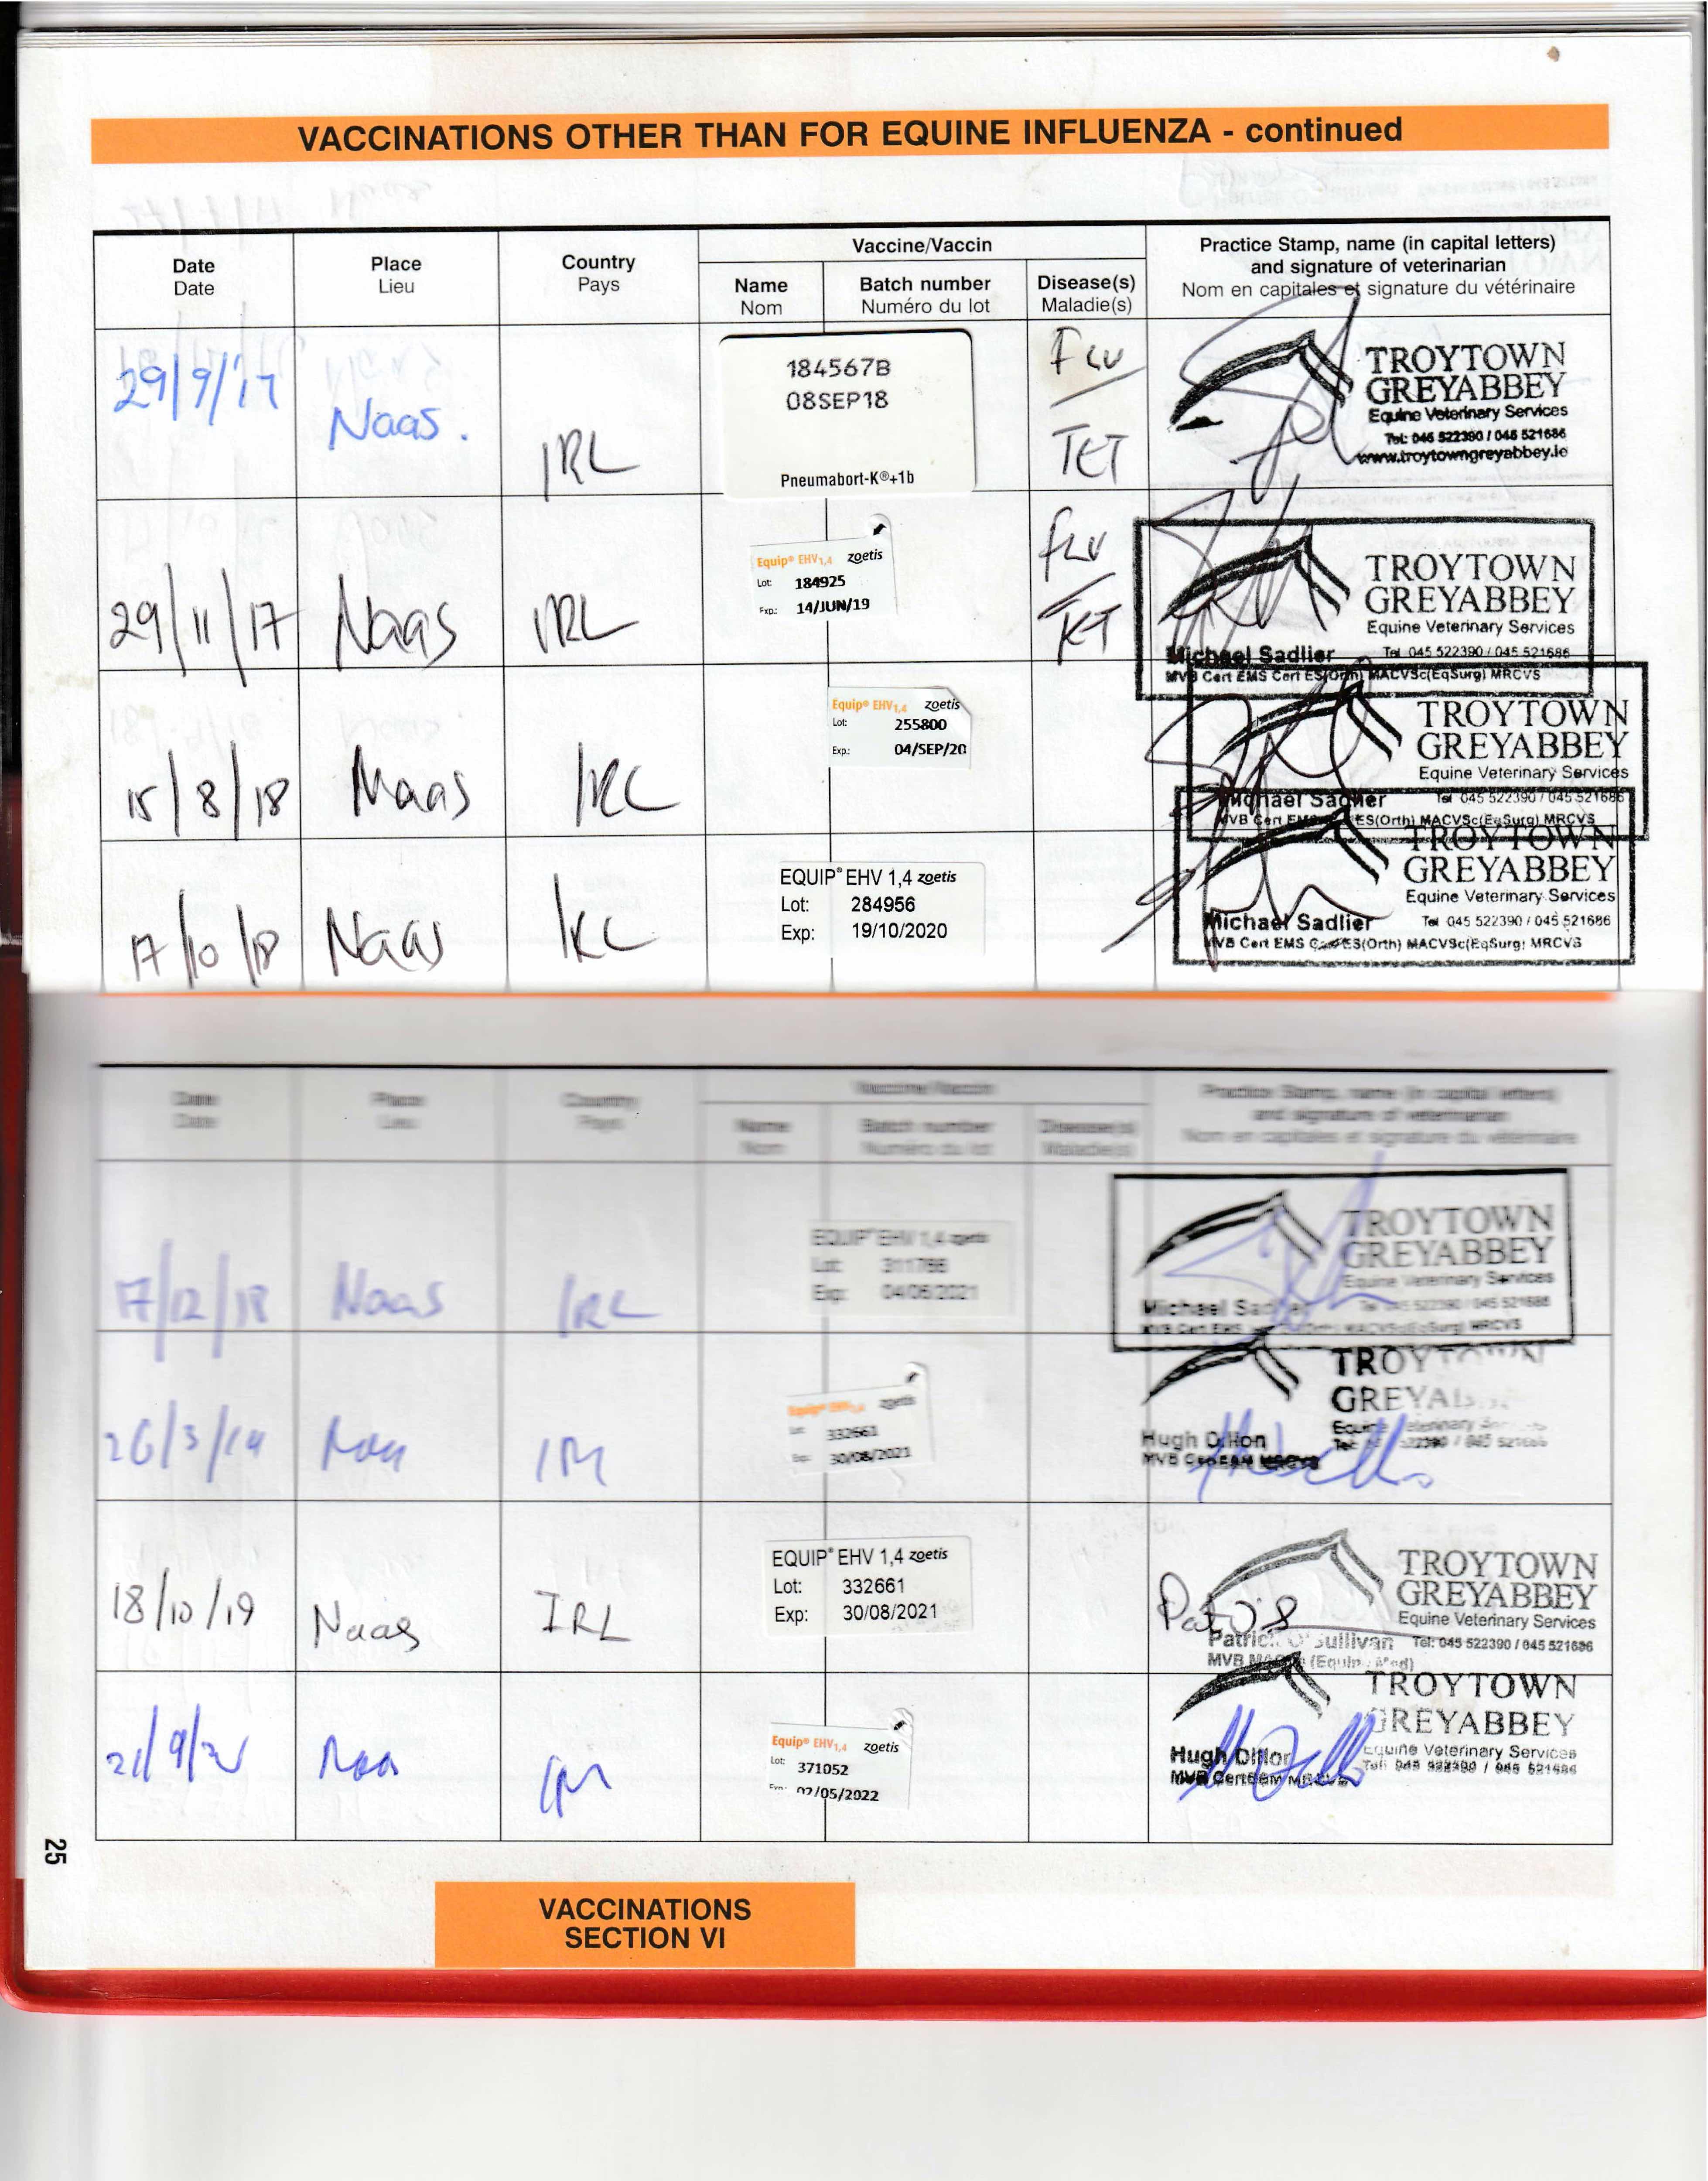 VACCINATIONS OTHER THAN FOR EQUINE INFLUENZA - continued
Date
Date
Place
Lieu
Country
Pays
Vaccine/Vaccin
Name
Nom
Batch number
Numéro du lot
Disease(s)
Maladie(s)
Practice Stamp, name (in capital letters)
and signature of veterinarian
Nom en capitales et signature du vétérinaire
29/9/17
Naas.
IRL
184567B
08SEP18
Pneumabort-K®+1b
FLU
TET
TROYTOWN
GREYABBEY
Equine Veterinary Services
Tel: 045 522390 / 045 521686
www.troytowngreyabbey.ie
29/11/17
Naas
IRL
Equip® EHV1,4 zoetis
Lot: 184925
Exp.: 14/JUN/19
FLU
TROYTOWN
GREYABBEY
Equine Veterinary Services
Michael Sadlier Tel 045 522390 / 045 521686
MVB Cert EMS Cert ES(Orth) MACVSc(EqSurg) MRCVS
15/8/18
Naas
IRL
Equip® EHV1,4 zoetis
Lot: 255800
Exp.: 04/SEP/20
TROYTOWN
GREYABBEY
Equine Veterinary Services
Michael Sadlier Tel 045 522390 / 045 521686
MVB Cert EMS ES(Orth) MACVSc(EqSurg) MRCVS
17/10/18
Naas
IRL
EQUIP® EHV 1,4 zoetis
Lot: 284956
Exp: 19/10/2020
TROYTOWN
GREYABBEY
Equine Veterinary Services
Michael Sadlier Tel 045 522390 / 045 521686
MVB Cert EMS Cert ES(Orth) MACVSc(EqSurg) MRCVS
Date
Date
Place
Lieu
Country
Pays
Vaccine/Vaccin
Name
Nom
Batch number
Numéro du lot
Disease(s)
Maladie(s)
Practice Stamp, name (in capital letters)
and signature of veterinarian
Nom en capitales et signature du vétérinaire
17/12/18
Naas
IRL
EQUIP® EHV 1,4 zoetis
Lot: 311766
Exp: 04/06/2021
TROYTOWN
GREYABBEY
Equine Veterinary Services
Michael Sadlier Tel 045 522390 / 045 521686
26/3/19
Naas
IRL
Equip® EHV1,4 zoetis
Lot: 332661
Exp: 30/08/2021
TROYTOWN
GREYABBEY
Equine Veterinary
Hugh Dillon Tel: 522390 / 045 521686
MVB CertEAM MRCVS
18/10/19
Naas
IRL
EQUIP® EHV 1,4 zoetis
Lot: 332661
Exp: 30/08/2021
Pat O'S
TROYTOWN
GREYABBEY
Equine Veterinary Services
Patrick O'Sullivan Tel: 045 522390 / 045 521686
MVB
Naas
IRL
Equip® EHV1,4 zoetis
Lot: 371052
Exp.: 02/05/2022
TROYTOWN
GREYABBEY
Equine Veterinary Services
Hugh Dillon Tel: 045 522390 / 045 521686
MVB CertEAM MRCVS
25
VACCINATIONS
SECTION VI